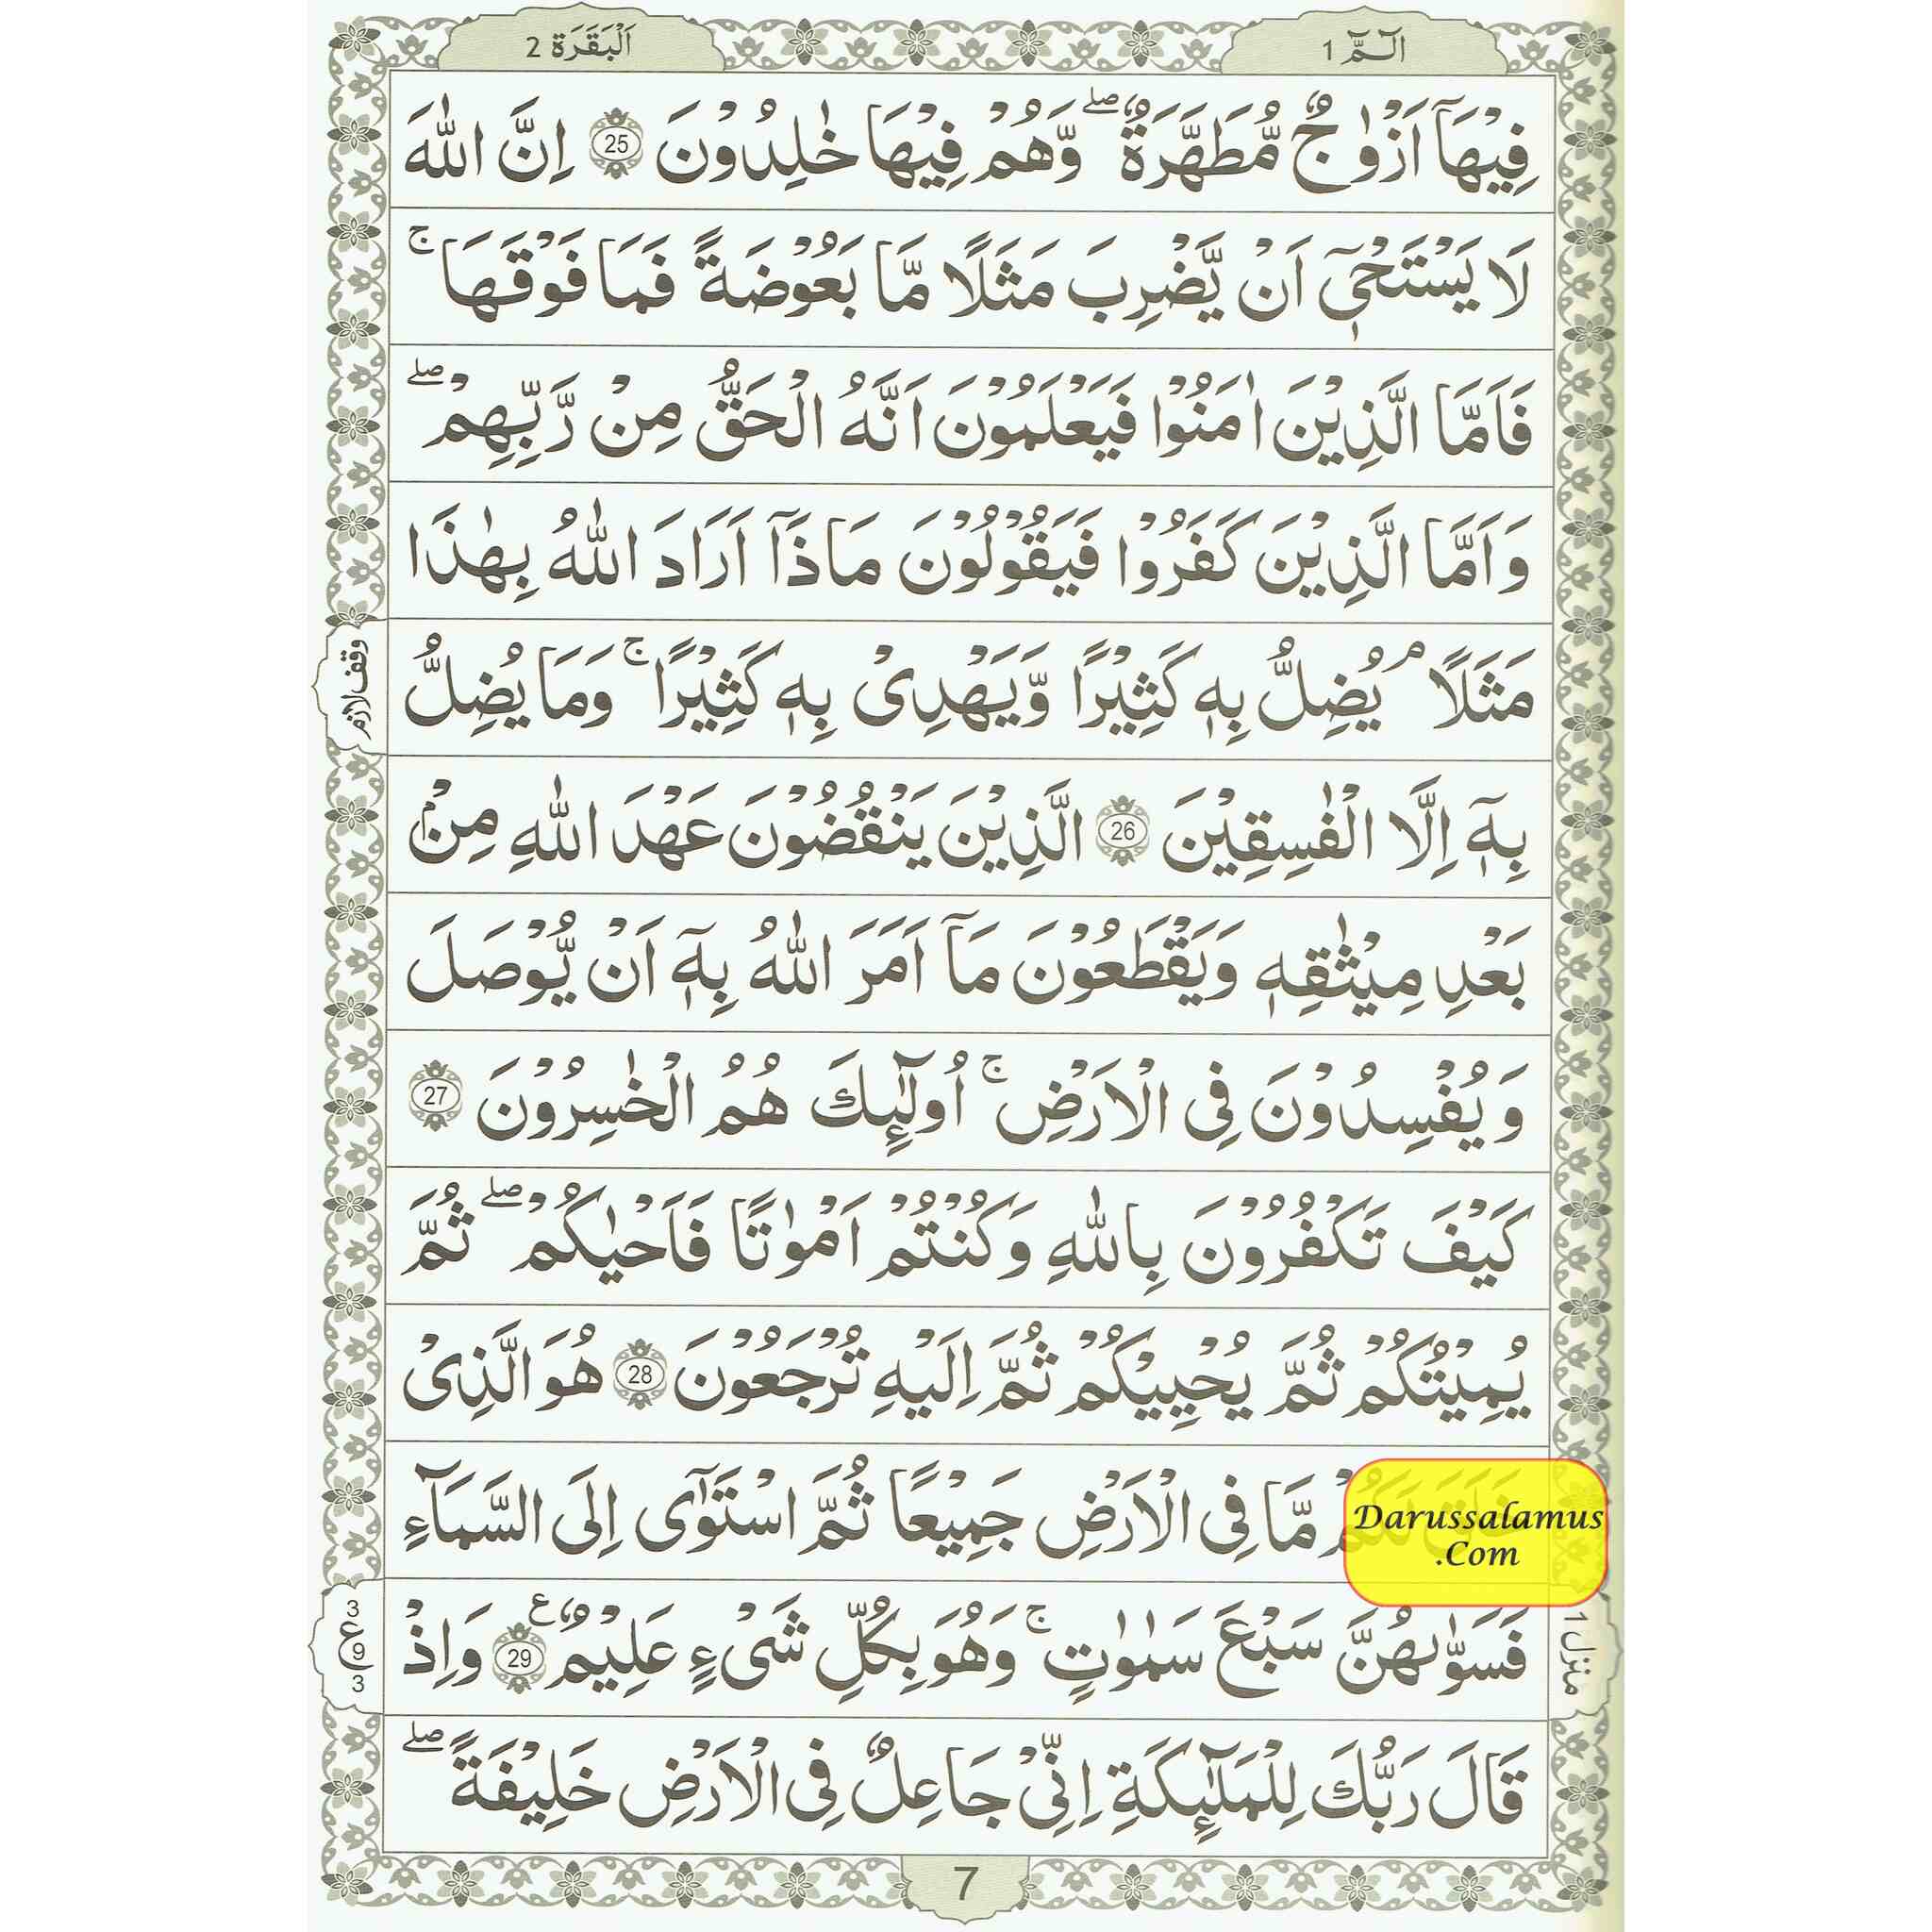 الٓمّٓ 1
اَلْبَقَرَة 2
فِيْهَآ اَزْوٰجٌ مُّطَهَّرَةٌ ۖ وَّهُمْ فِيْهَا خٰلِدُوْنَ 25 اِنَّ اللّٰهَ
لَا يَسْتَحْيٖٓ اَنْ يَّضْرِبَ مَثَلًا مَّا بَعُوْضَةً فَمَا فَوْقَهَا ۚ
فَاَمَّا الَّذِيْنَ اٰمَنُوْا فَيَعْلَمُوْنَ اَنَّهُ الْحَقُّ مِنْ رَّبِّهِمْ ۖ
وَاَمَّا الَّذِيْنَ كَفَرُوْا فَيَقُوْلُوْنَ مَاذَآ اَرَادَ اللّٰهُ بِهٰذَا
مَثَلًا ۘ يُضِلُّ بِهٖ كَثِيْرًا وَّيَهْدِىْ بِهٖ كَثِيْرًا ۚ وَمَا يُضِلُّ
وقف لازم
بِهٖٓ اِلَّا الْفٰسِقِيْنَ 26 الَّذِيْنَ يَنْقُضُوْنَ عَهْدَ اللّٰهِ مِنْۢ
بَعْدِ مِيْثٰقِهٖ وَيَقْطَعُوْنَ مَآ اَمَرَ اللّٰهُ بِهٖٓ اَنْ يُّوْصَلَ
وَيُفْسِدُوْنَ فِى الْاَرْضِ ۚ اُولٰٓئِكَ هُمُ الْخٰسِرُوْنَ 27
كَيْفَ تَكْفُرُوْنَ بِاللّٰهِ وَكُنْتُمْ اَمْوٰتًا فَاَحْيٰكُمْ ۖ ثُمَّ
يُمِيْتُكُمْ ثُمَّ يُحْيِيْكُمْ ثُمَّ اِلَيْهِ تُرْجَعُوْنَ 28 هُوَ الَّذِىْ
خَلَقَ لَكُمْ مَّا فِى الْاَرْضِ جَمِيْعًا ثُمَّ اسْتَوٰٓى اِلَى السَّمَآءِ
Darussalamus
.Com
فَسَوّٰىهُنَّ سَبْعَ سَمٰوٰتٍ ۚ وَهُوَ بِكُلِّ شَىْءٍ عَلِيْمٌ ع 29 وَاِذْ
منزل 1
3
ع
9
3
قَالَ رَبُّكَ لِلْمَلٰٓئِكَةِ اِنِّىْ جَاعِلٌ فِى الْاَرْضِ خَلِيْفَةً ۖ
7